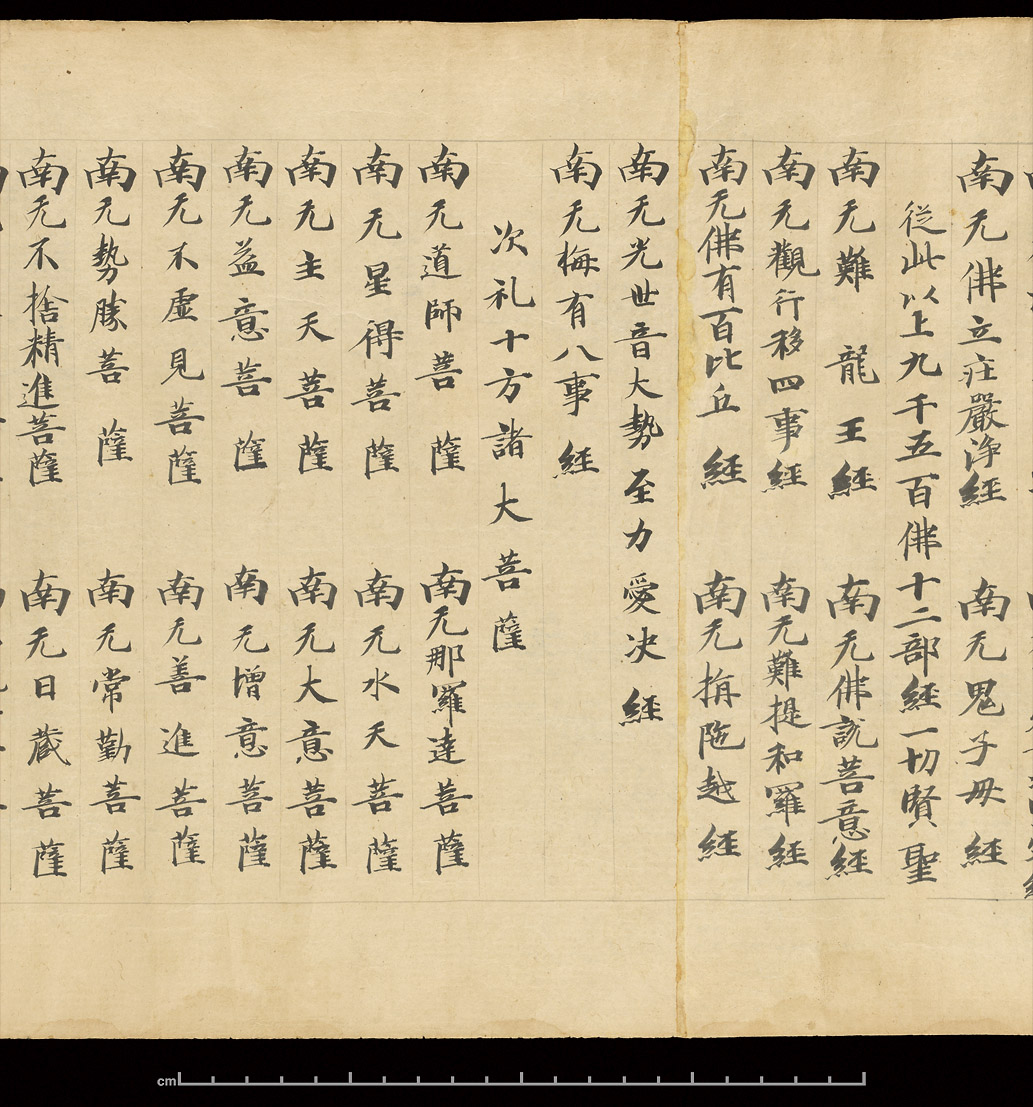 南无佛立庄嚴淨經 南无鬼子母經
從此以上九千五百佛十二部經一切賢聖
南无難龍王經 南无佛說菩意經
南无觀行移四事經 南无難提和羅經
南无佛有百比丘經 南无揹陁越經
南无光世音大勢至力愛決經
南无梅有八事經
次礼十方諸大菩薩
南无道師菩薩 南无那羅達菩薩
南无星得菩薩 南无水天菩薩
南无主天菩薩 南无大意菩薩
南无益意菩薩 南无增意菩薩
南无不虛見菩薩 南无善進菩薩
南无勢勝菩薩 南无常勤菩薩
南无不捨精進菩薩 南无日藏菩薩
cm